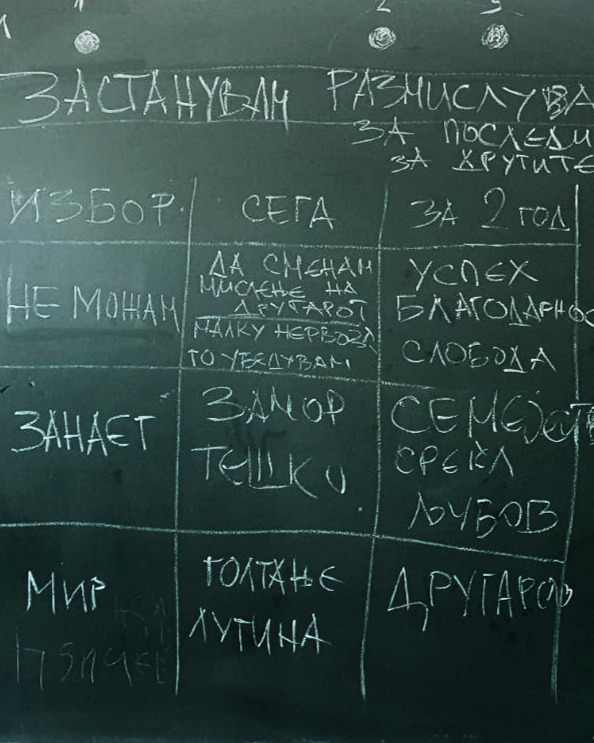 1
1 2 3
ЗАСТАНУВАМ РАЗМИСЛУВА
ЗА ПОСЛЕДИ
ЗА ДРУГИТЕ
ИЗБОР СЕГА ЗА 2 ГОД
НЕ МОЖАМ
ДА СМЕНАМ
МИСЛЕЊЕ НА
ДРУГАРОТ
МАЛКУ НЕРВОЗА
ГО УБЕДУВАМ
УСПЕХ
БЛАГОДАРНОС
СЛОБОДА
ЗАНАЕТ
ЗАМОР
ТЕШКО
СЕМЕЈСТ
СРЕЌА
ЉУБОВ
МИР
ГОЛТАЊЕ
ЛУТИНА
ДРУГАРОВ